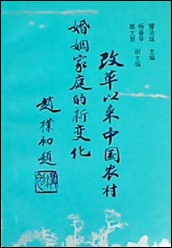 雷洁琼 主编
杨善华 副主编
蔡文眉
改革以来中国农村
婚姻家庭的新变化
趙樸初題